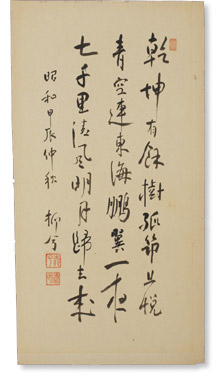 乾坤有餘樹孤筇且悦
青空連東海鵬翼一夜
七千里清風明月歸去来
昭和甲辰仲秋 柳